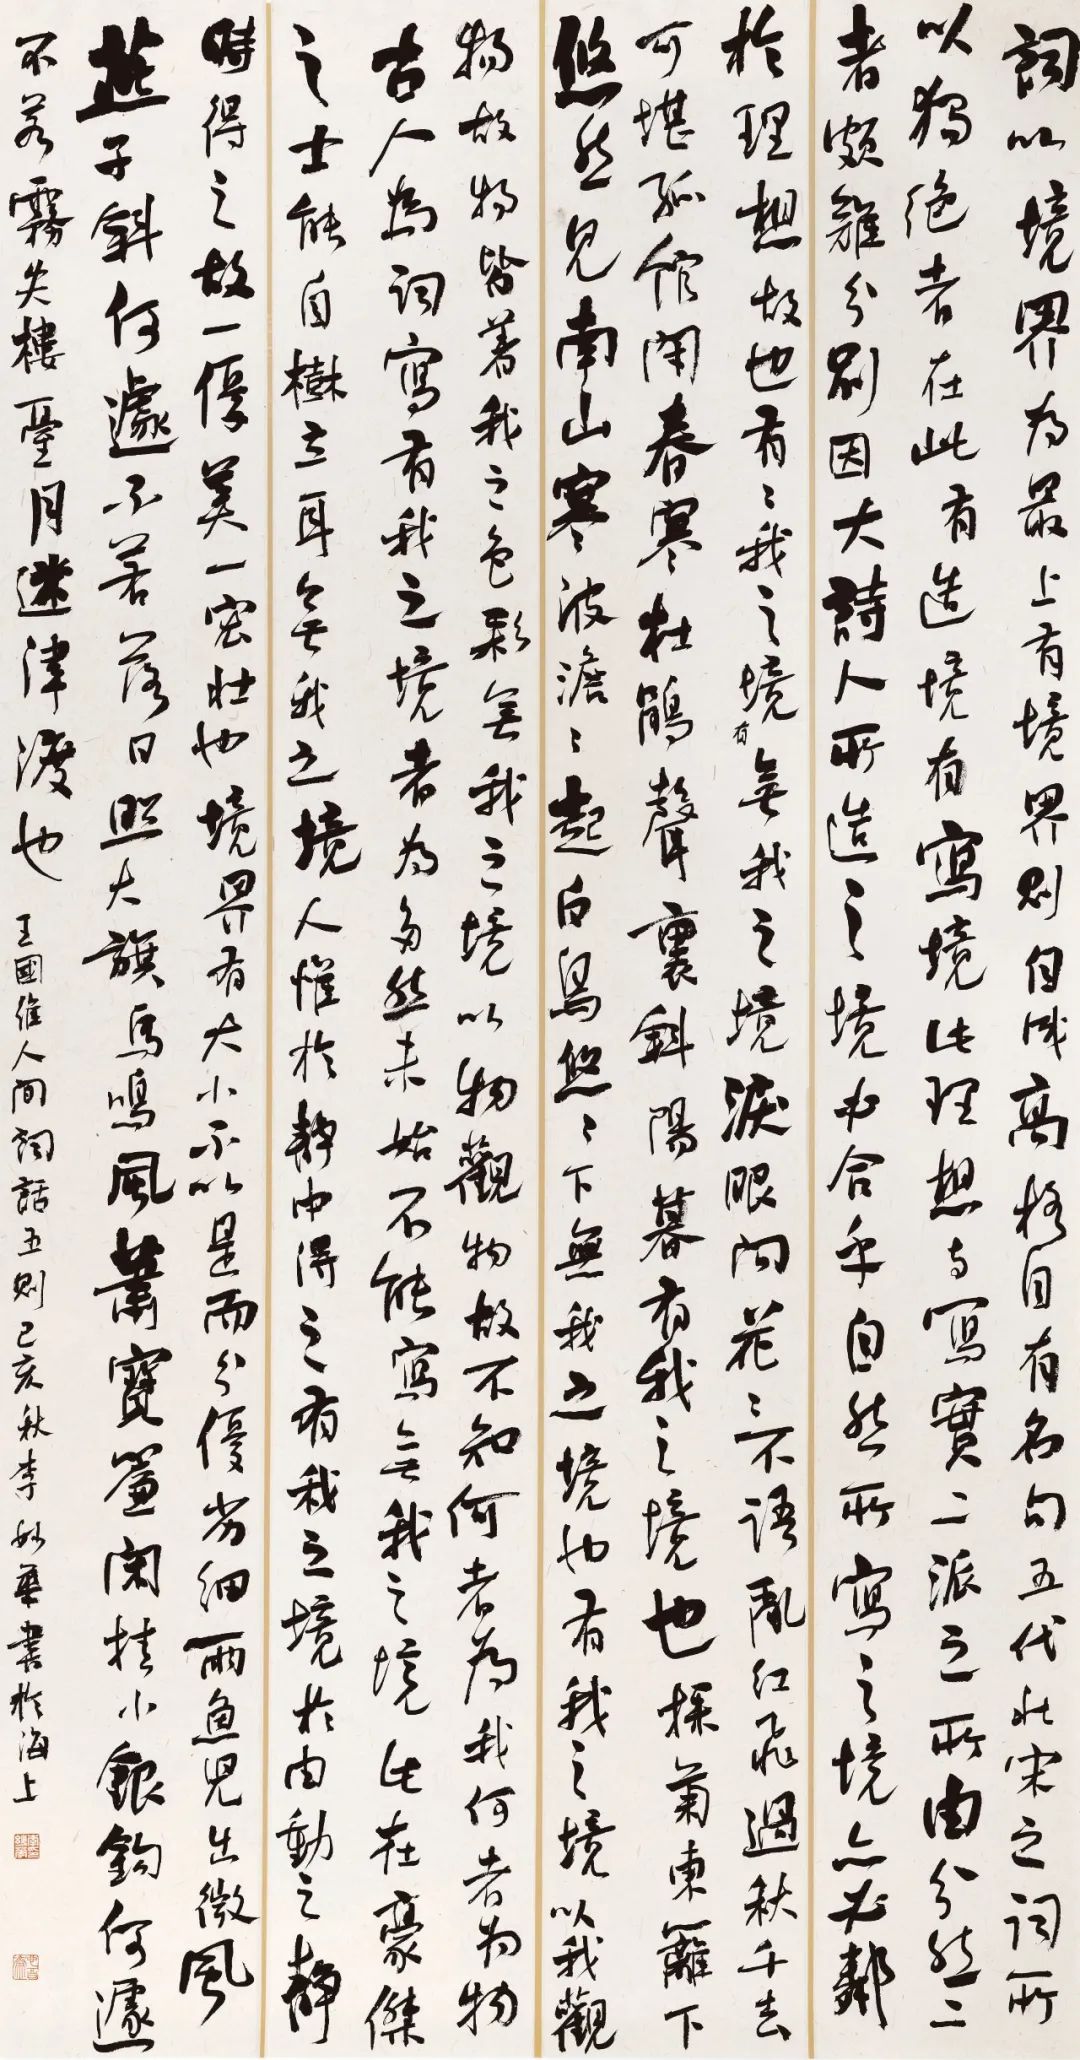 詞以境界为最上有境界則自成高格自有名句五代北宋之詞所
以獨絶者在此有造境有寫境此理想与寫實二派之所由分然二
者颇難分别因大詩人所造之境必合乎自然所寫之境亦必鄰
於理想故也有々我之境有無我之境淚眼问花々不语亂红飛過秋千去
可堪孤館閉春寒杜鵑聲裏斜陽暮有我之境也採菊東籬下
悠然見南山寒波澹々起白鳥悠々下無我之境也有我之境以我觀
物故物皆著我之色彩無我之境以物觀物故不知何者為我何者为物
古人為词寫有我之境者为多然未始不能寫無我之境此在豪傑
之士能自樹立耳無我之境人惟於静中得之有我之境於由動之静
時得之故一優美一宏壯也境界有大小不以是而分優劣细雨魚兒出微風
燕子斜何遽不若落日照大旗馬鳴風蕭寶簾閑挂小銀鉤何遽
不若霧失樓臺月迷津渡也
王國维人间詞話五則己亥秋李華書於海上